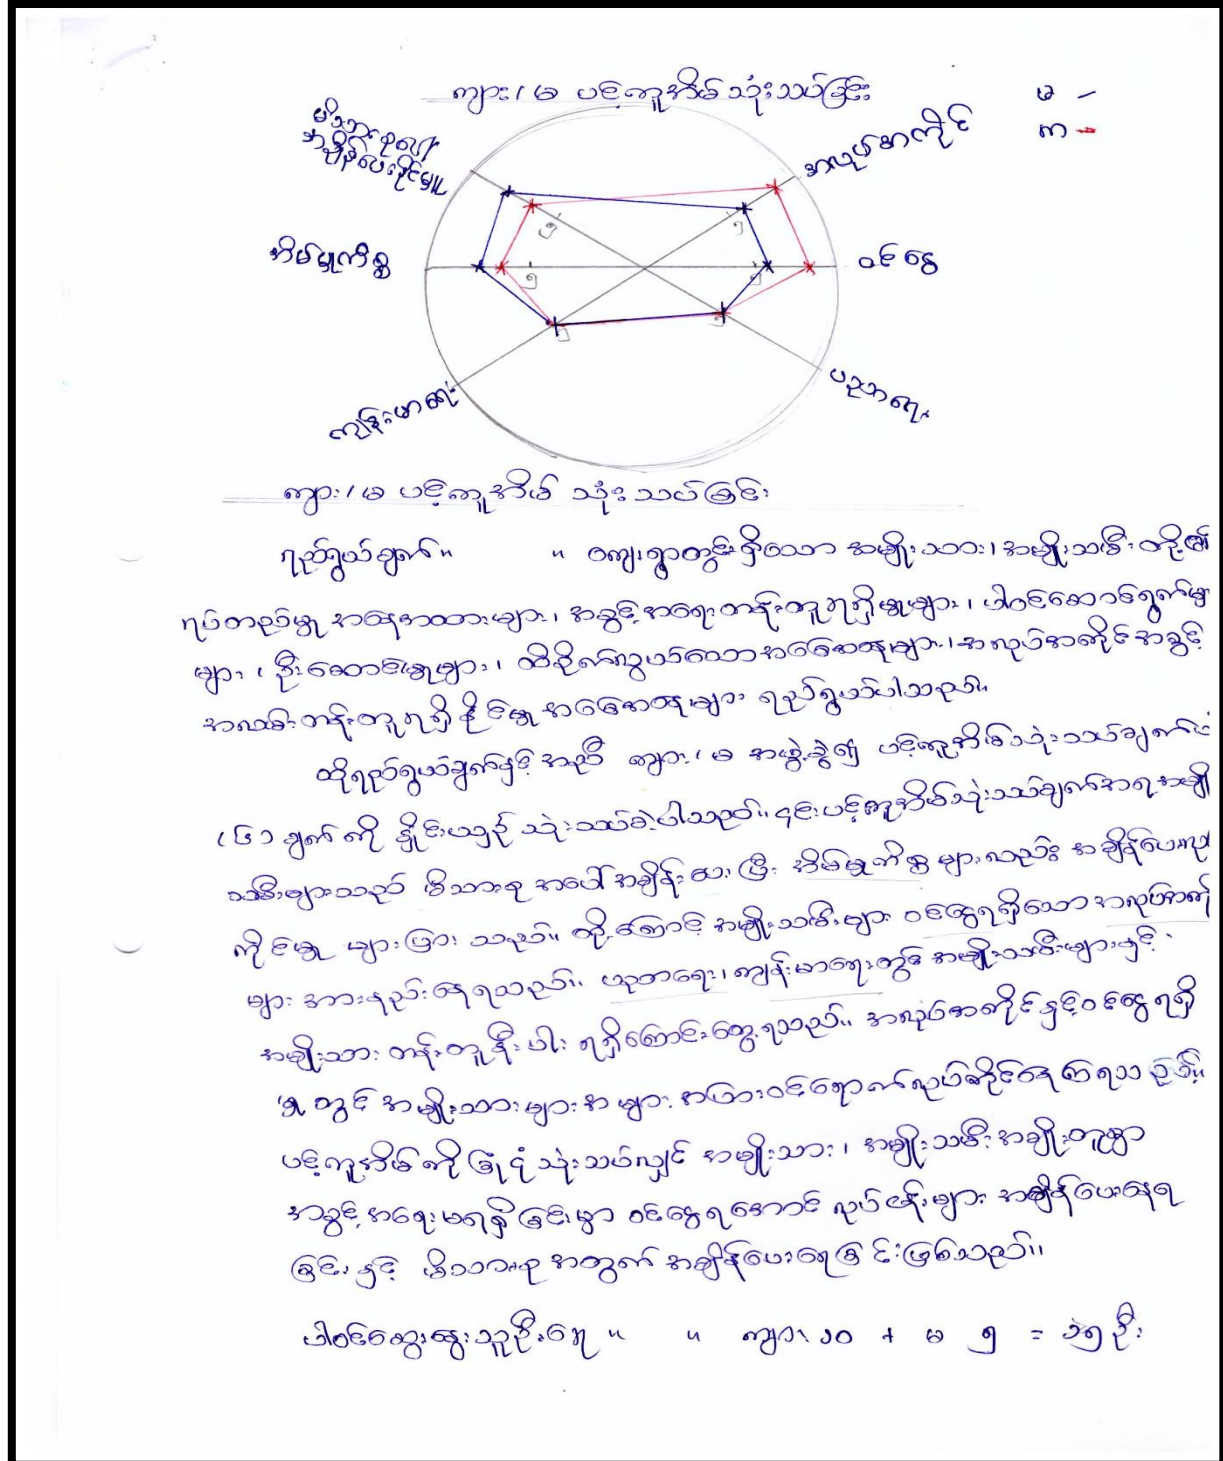 ကျား/မ ပင့်ကူအိမ်သုံးသပ်ခြင်း
မ -
ကျ -
မိသားစုပေါ်
အချိန်ပေးနိုင်မှု
အလုပ်အကိုင်
အိမ်မှုကိစ္စ
ဝင်ငွေ
၅
၅
၅
၅
၅
၅
ကျန်းမာရေး
ပညာရေး
ကျား/မ ပင့်ကူအိမ် သုံးသပ်ခြင်း
ရည်ရွယ်ချက်။ ။ ကျေးရွာတွင်းရှိသော အမျိုးသား၊ အမျိုးသမီးတို့၏
ရပ်တည်မှု အနေအထားများ၊ အခွင့်အရေးတန်းတူရရှိမှုများ၊ ပါဝင်ဆောင်ရွက်မှု
များ၊ ဦးဆောင်မှုများ၊ ထိခိုက်လွယ်သောအခြေအနေများ၊ အလုပ်အကိုင်အခွင့်
အလမ်းတန်းတူရရှိနိုင်မှု အခြေအနေများ ရည်ရွယ်ပါသည်။
ထိုရည်ရွယ်ချက်နှင့်အညီ ကျား/မ အဖွဲ့ခွဲ၍ ပင့်ကူအိမ်သုံးသပ်ချက်
(၆)ချက်ကို နှိုင်းယှဉ်သုံးသပ်ခဲ့ပါသည်။ ၎င်းပင့်ကူအိမ်သုံးသပ်ချက်အရ အမျိုး
သမီးများသည် မိသားစုအပေါ် အချိန်ပေးပြီး အိမ်မှုကိစ္စများလည်း အချိန်ပေးလုပ်
ကိုင်မှု များပြားသည်။ ထို့ကြောင့် အမျိုးသမီးများ ဝင်ငွေရရှိသောအလုပ်အကိုင်
များ အားနည်းနေရသည်။ ပညာရေး၊ ကျန်းမာရေးတွင် အမျိုးသမီးများနှင့်
အမျိုးသား တန်းတူနီးပါး ရရှိကြောင်းတွေ့ရသည်။ အလုပ်အကိုင်နှင့်ဝင်ငွေရရှိ
မှုတွင် အမျိုးသားများအများ အပြားဝင်ရောက်လုပ်ကိုင်နေကြရသည်။
ပင့်ကူအိမ်ကိုခြုံငုံသုံးသပ်လျှင် အမျိုးသား၊ အမျိုးသမီးအချိုးတူစွာ
အခွင့်အရေးမရရှိခြင်းမှာ ဝင်ငွေရအောင် လုပ်ငန်းများ အချိန်ပေးနေရ
ခြင်းနှင့် မိသားစုအတွက် အချိန်ပေးရခြင်းဖြစ်သည်။
ပါဝင်ဆွေးနွေးသူဦးရေ။ ။ ကျား ၁၀ + မ ၅ = ၁၅ ဦး